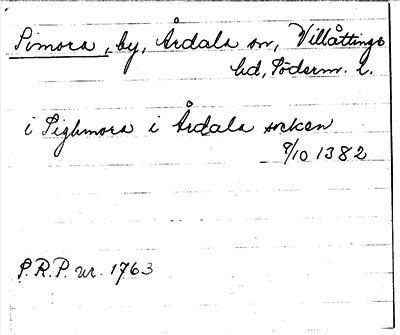 Simora, by, Årdala sn, Villåttinge
hd, Söderm. l.
i Sighmora i Årdala socken
9/10 1382
S.R.P. nr. 1763